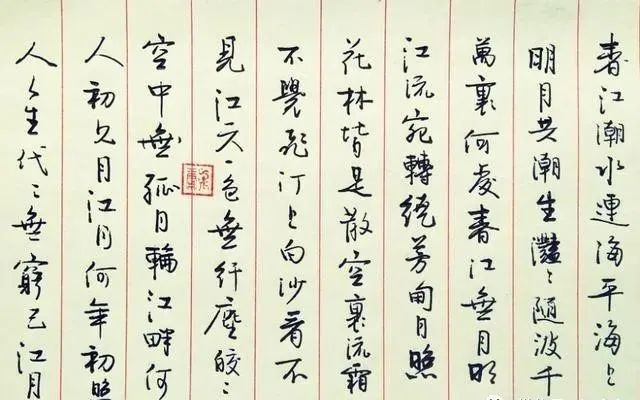 春江潮水連海平海上
明月共潮生灩〻隨波千
萬裏何處春江無月明
江流宛轉繞芳甸月照
花林皆是散空裏流霜
不覺飛汀上白沙看不
見江天一色無纤塵皎〻
空中無孤月輪江畔何
人初見月江月何年初照
人〻生代〻無窮已江月